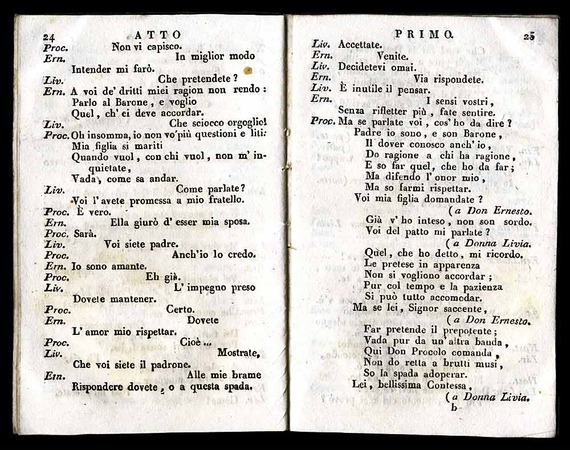 24 ATTO
Proc. Non vi capisco.
Ern. In miglior modo
Intender mi farò.
Liv. Che pretendete?
Ern. A voi de' dritti miei ragion non rendo:
Parlo al Barone, e voglio
Quel, ch'ei deve accordar.
Liv. Che sciocco orgoglio!
Proc. Oh insomma, io non vo' più questioni e liti:
Mia figlia si mariti
Quando vuol, con chi vuol, non m' in-
quietate,
Vada, come sa andar.
Liv. Come parlate?
Voi l'avete promessa a mio fratello.
Proc. È vero.
Ern. Ella giurò d' esser mia sposa.
Proc. Sarà.
Liv. Voi siete padre.
Proc. Anch'io lo credo.
Ern. Io sono amante.
Proc. Eh già.
Liv. L' impegno preso
Dovete mantener.
Proc. Certo.
Ern. Dovete
L' amor mio rispettar.
Proc. Cioè ...
Liv. Mostrate,
Che voi siete il padrone.
Ern. Alle mie brame
Rispondere dovete, o a questa spada.
PRIMO. 25
Liv. Accettate.
Ern. Venite.
Liv. Decidetevi omai.
Ern. Via rispondete.
Liv. È inutile il pensar.
Ern. I sensi vostri,
Senza rifletter più, fate sentire.
Proc. Ma se parlate voi, cos' ho da dire?
Padre io sono, e son Barone,
Il dover conosco anch' io,
Do ragione a chi ha ragione,
E so far quel, che ho da far;
Ma difendo l' onor mio,
Ma so farmi rispettar.
Voi mia figlia domandate?
(a Don Ernesto.
Già v' ho inteso, non son sordo.
Voi del patto mi parlate?
(a Donna Livia.
Quel, che ho detto, mi ricordo.
Le pretese in apparenza
Non si vogliono accordar;
Pur col tempo e la pazienza
Si può tutto accomodar.
Ma se lei, Signor saccente,
(a Don Ernesto.
Far pretende il prepotente;
Vada pur da un' altra banda,
Qui Don Procolo comanda,
Non do retta a brutti musi,
So la spada adoperar.
Lei, bellissima Contessa,
(a Donna Livia.
b